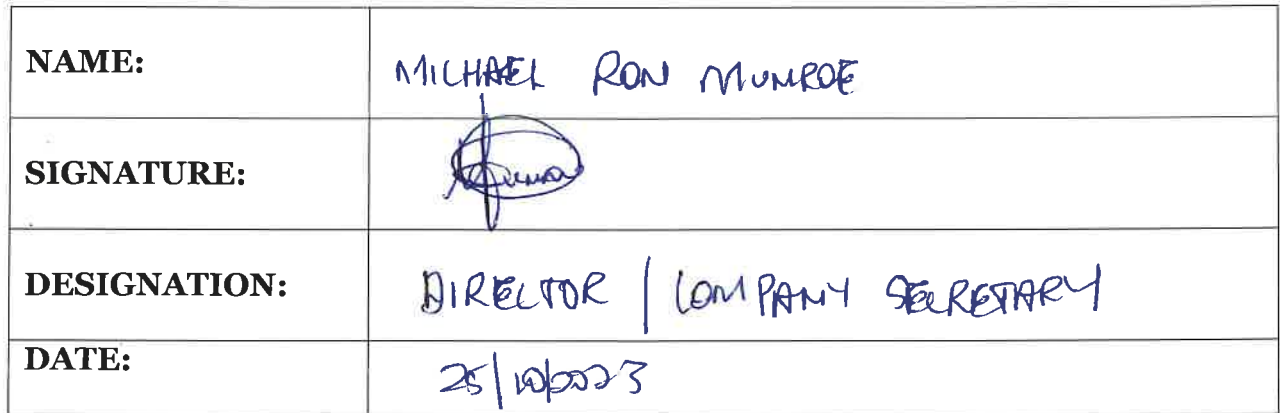 NAME: MICHAEL RON MUNROE
SIGNATURE:
DESIGNATION: DIRECTOR | COMPANY SECRETARY
DATE: 25/10/2023